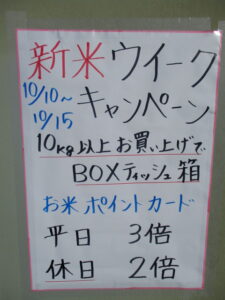 新米ウイーク
10/10～
10/15
キャンペーン
10kg以上お買い上げで
BOXティッシュ箱
お米ポイントカード
平日 3倍
休日 2倍